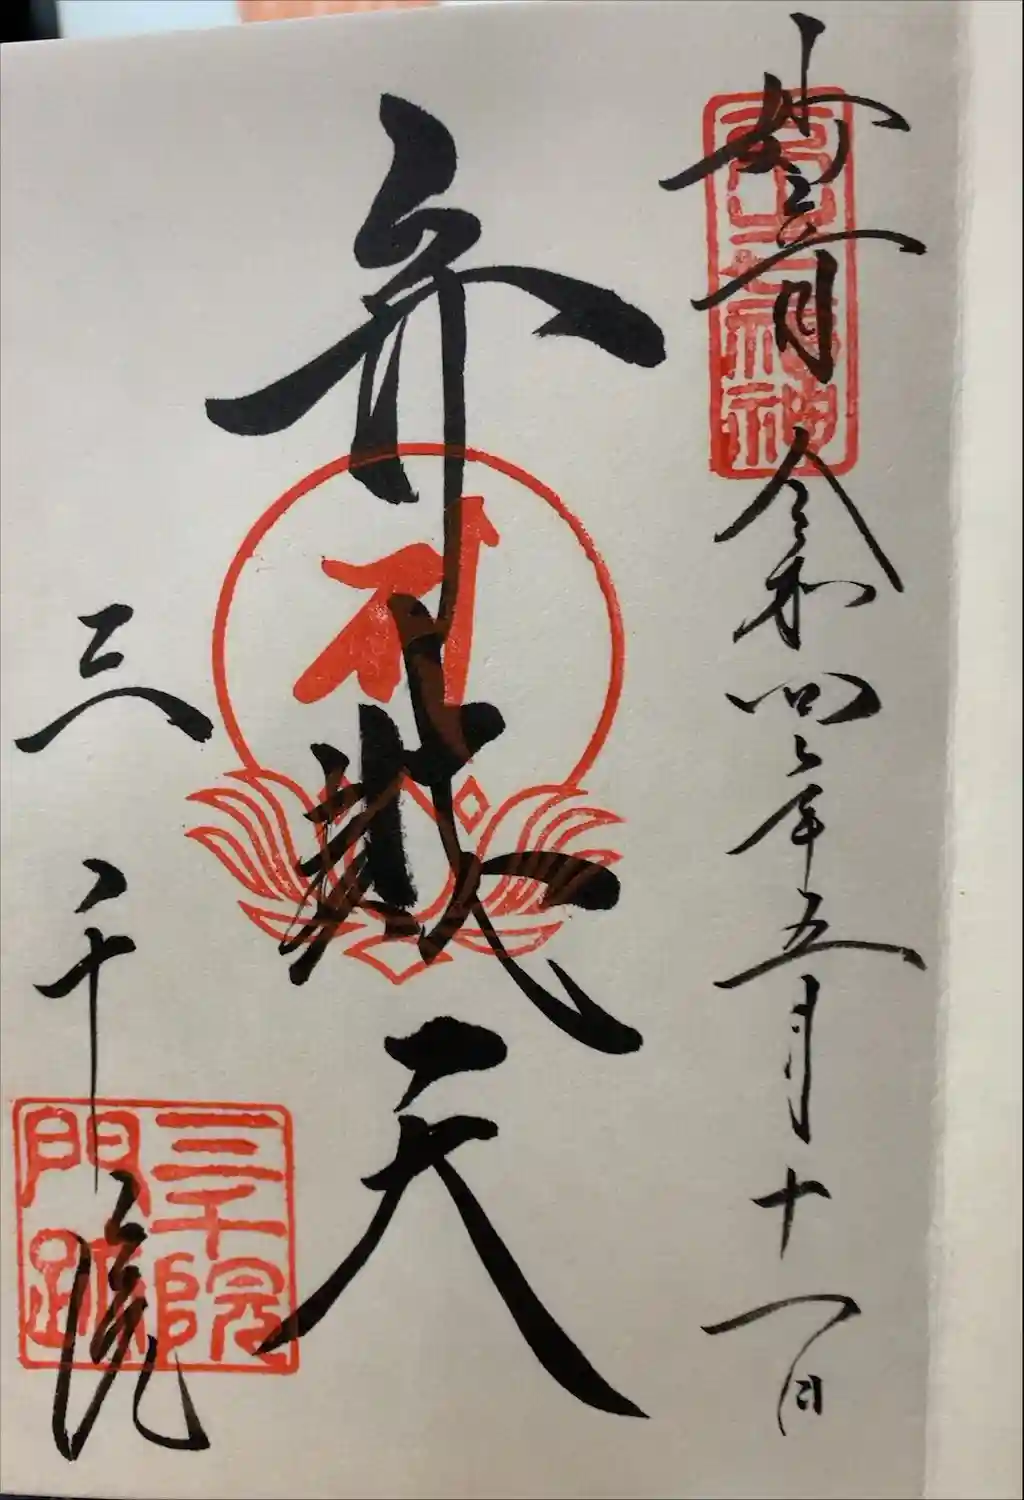 奉拝
令和四年五月十一日
弁財天
三千院
三千院
門跡